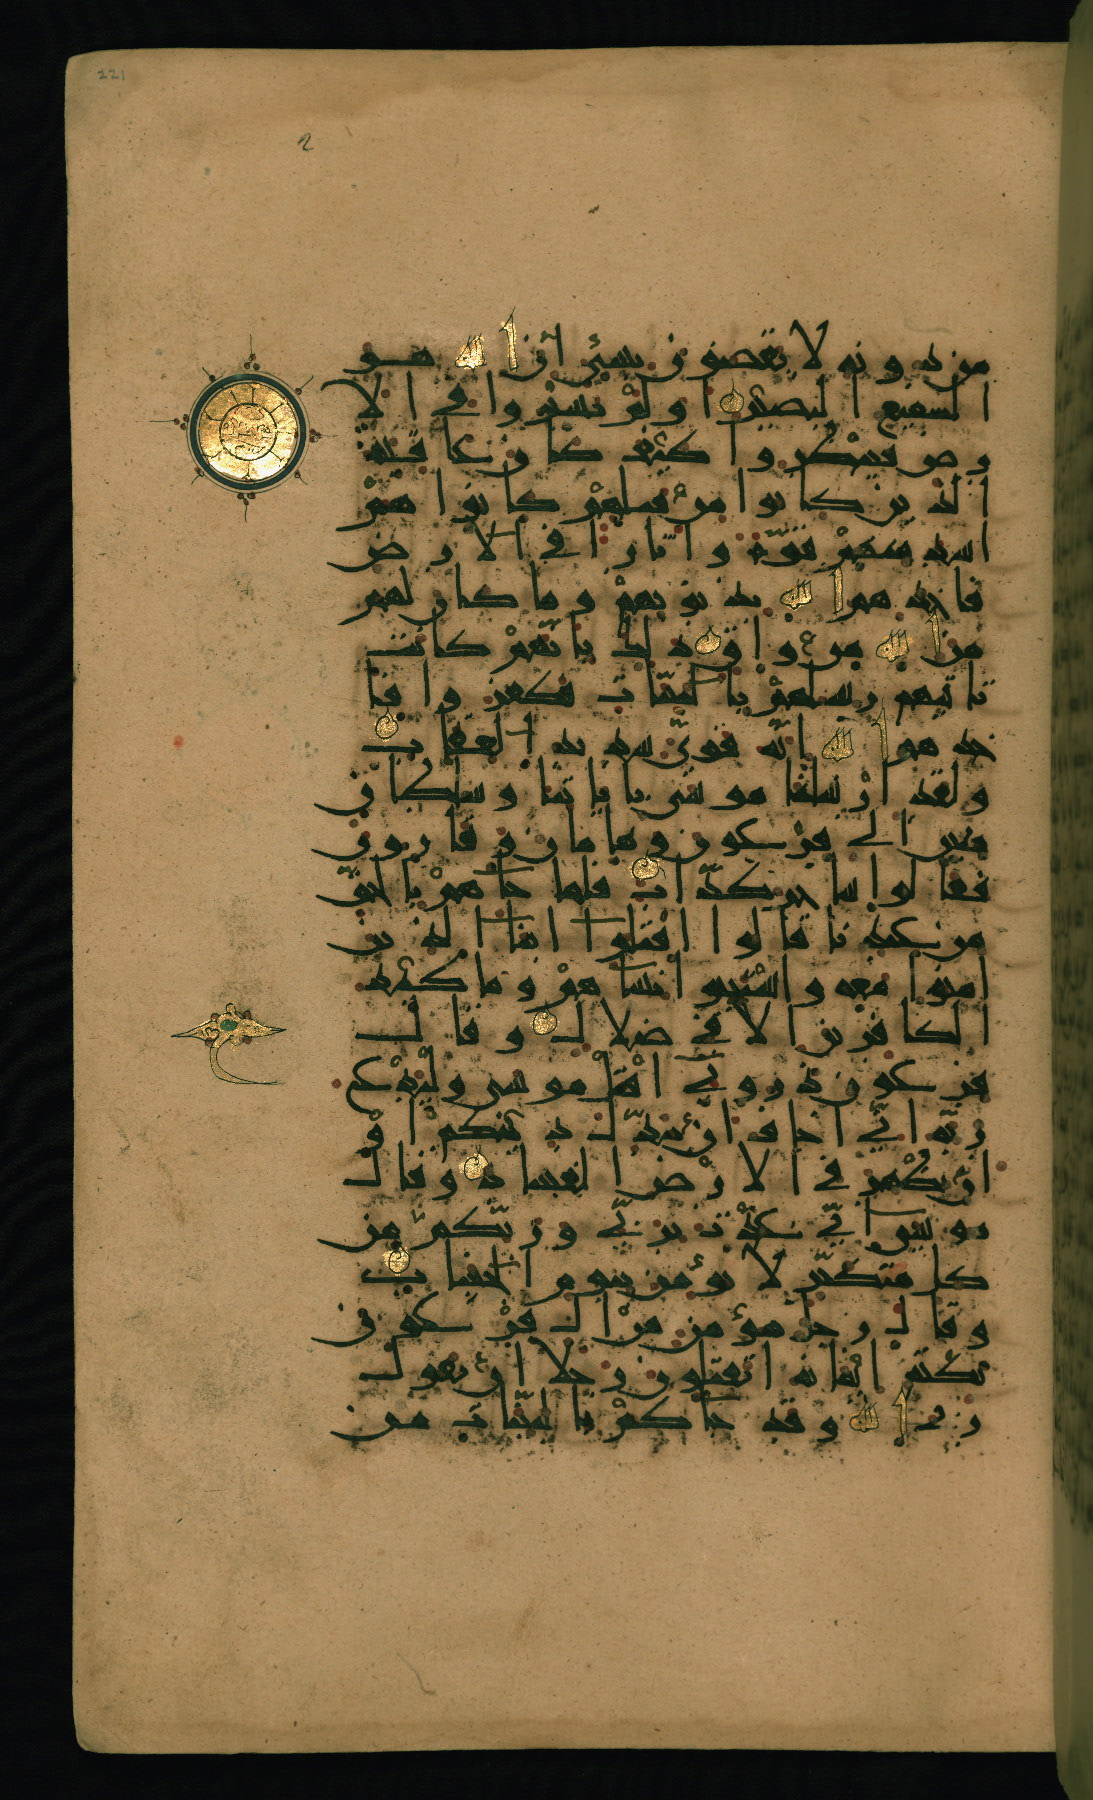 221
2
من دونه لا يقضون بشئ ان الله هو
السميع البصير اولم يسيروا في الا
رض فينظروا كيف كان عاقبة
الذين كانوا من قبلهم كانوا هم
اشد منهم قوة واثارا في الارض
فاخذهم الله بذنوبهم وما كان لهم
من الله من واق ذلك بانهم كانت
تاتيهم رسلهم بالبينات فكفروا فا
خذهم الله انه قوي شديد العقاب
ولقد ارسلنا موسى باياتنا وسلطان
مبين الى فرعون وهامان وقارون
فقالوا ساحر كذاب فلما جاهم بالحق
من عندنا قالوا اقتلوا ابنا الذين
امنوا معه واستحيوا نساهم وما كيد
الكافرين الا في ضلال وقال
فرعون ذروني اقتل موسى وليدع
ربه اني اخاف ان يبدل دينكم او
ان يظهر في الارض الفساد وقال
موسى اني عذت بربي وربكم من
كل متكبر لا يؤمن بيوم الحساب
وقال رجل مؤمن من ال فرعون
يكتم ايمانه اتقتلون رجلا ان يقول
ربي الله وقد جاكم بالبينات من